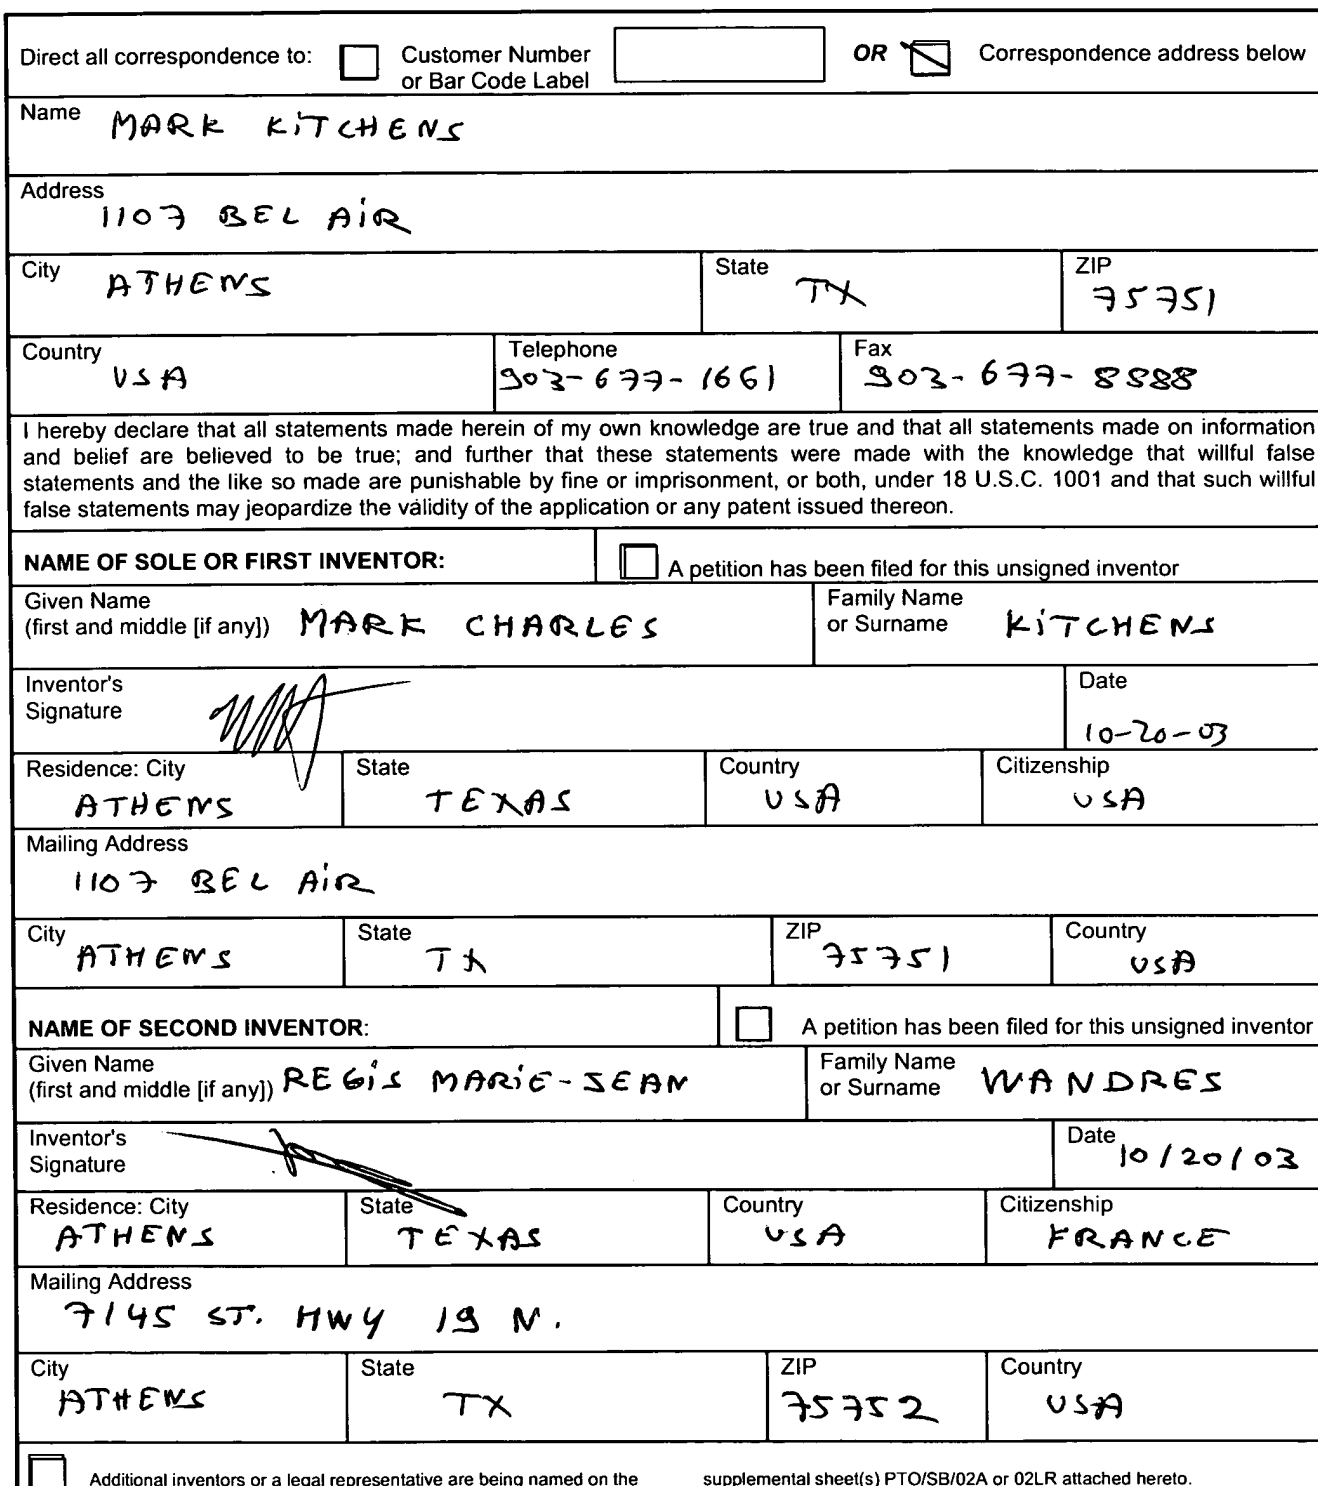 Direct all correspondence to: Customer Number or Bar Code Label OR Correspondence address below
Name MARK KITCHENS
Address
1107 BEL AIR
City ATHENS State TX ZIP 75751
Country USA Telephone 903-677-1661 Fax 903-677-8588
I hereby declare that all statements made herein of my own knowledge are true and that all statements made on information
and belief are believed to be true; and further that these statements were made with the knowledge that willful false
statements and the like so made are punishable by fine or imprisonment, or both, under 18 U.S.C. 1001 and that such willful
false statements may jeopardize the validity of the application or any patent issued thereon.
NAME OF SOLE OR FIRST INVENTOR: A petition has been filed for this unsigned inventor
Given Name
(first and middle [if any]) MARK CHARLES
Family Name
or Surname KITCHENS
Inventor's
Signature
Date
10-20-03
Residence: City State Country Citizenship
ATHENS TEXAS USA USA
Mailing Address
1107 BEL AIR
City ATHENS State TX ZIP 75751 Country USA
NAME OF SECOND INVENTOR: A petition has been filed for this unsigned inventor
Given Name
(first and middle [if any]) REGIS MARIE-JEAN
Family Name
or Surname WANDRES
Inventor's
Signature
Date 10/20/03
Residence: City State Country Citizenship
ATHENS TEXAS USA FRANCE
Mailing Address
7145 ST. HWY 19 N.
City State ZIP Country
ATHENS TX 75752 USA
Additional inventors or a legal representative are being named on the supplemental sheet(s) PTO/SB/02A or 02LR attached hereto.